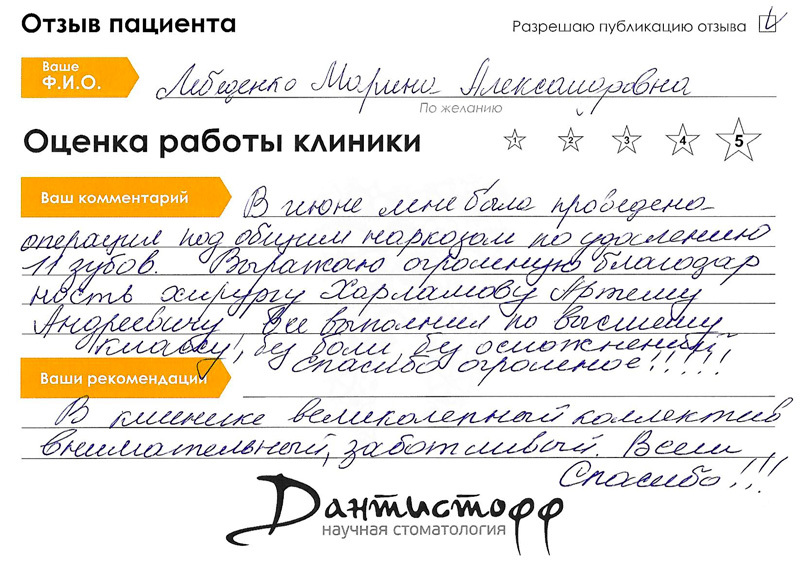 Отзыв пациента
Разрешаю публикацию отзыва
Ваше
Ф.И.О.
Лебеденко Марина Александровна
По желанию
Оценка работы клиники
1 2 3 4 5
Ваш комментарий
В июне мне была проведена
операция под общим наркозом по удалению
11 зубов. Выражаю огромную благодар
ность хирургу Харламову Артему
Андреевичу. Все выполнил по высшему
классу, без боли, без осложнений
Спасибо огромное!!!!!
Ваши рекомендации
В клинике великолепный коллектив
внимательный, заботливый. Всем
Спасибо!!!
Дантистофф
научная стоматология